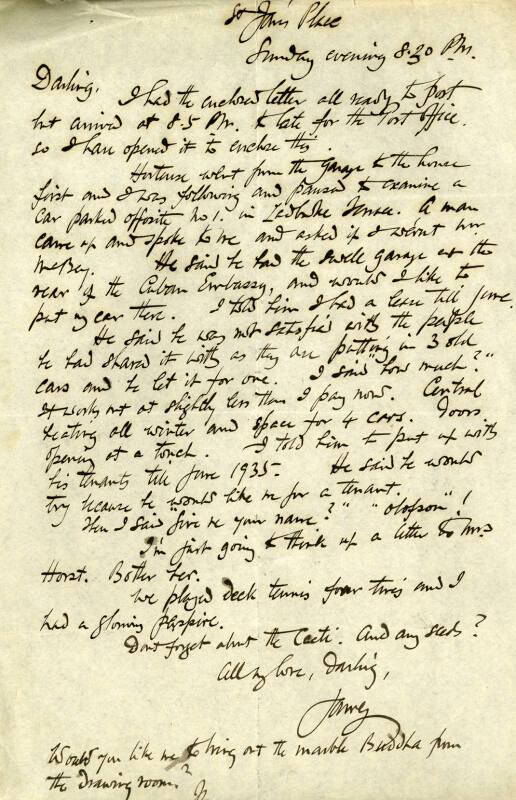 St James Place
Sunday evening 8.20 P.M.
Darling,
I had the enclosed letter all ready to post
but arrived at 8.5 P.M. to late for the Post Office.
so I have opened it to enclose this.
Hortense went from the Garage to the house
first and I was following and paused to examine a
car parked opposite No 1. in Ladbroke Terrace. A man
came up and spoke to me and asked if I weren't Mr
McBey. He said he had the swell garage at the
rear of the Cuban Embassy, and would I like to
put my car there. I told him I had a lease till June.
He said he was not satisfied with the people
he had shared it with as they are putting in 3 old
cars and he let it for one. I said "How much?"
It works out at slightly less than I pay now. Central
heating all winter and space for 4 cars. Doors
opening at a touch. I told him to put up with
his tenants till June 1935. He said he would
try because he would like me for a tenant.
Then I said "give me your name?" "Olofson"!
I'm just going to think up a letter to Mrs
Horst. Bother her.
We played deck tennis four times and I
had a glowing perspire.
Dont forget about the Cacti. And any seeds?
All my love, Darling,
James
Would you like me to bring out the marble Buddha from
the drawing room?